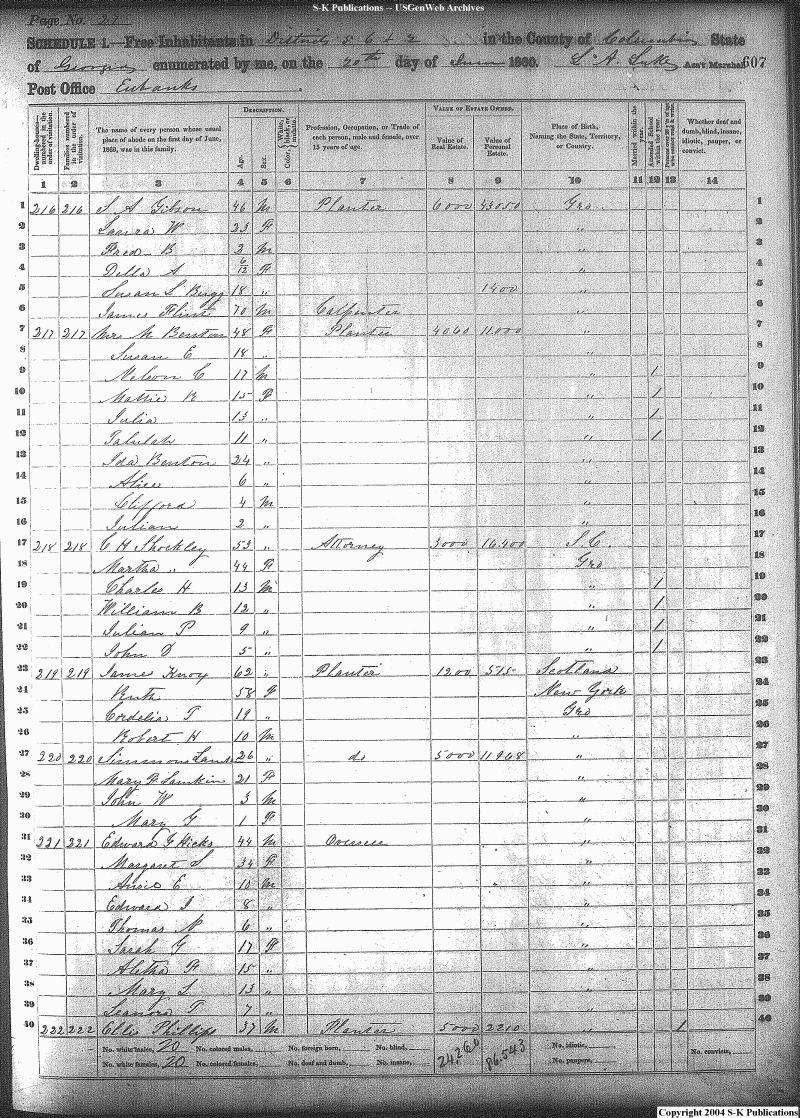 S-K Publications -- USGenWeb Archives
Page No. 27
SCHEDULE 1.—Free Inhabitants in Districts 5 6 & 2 in the County of Columbia State
of Georgia enumerated by me, on the 20th day of June 1860. Ass't Marshal 607
Post Office Eubanks
Dwelling-houses—numbered in the order of visitation.
Families numbered in the order of visitation.
The name of every person whose usual place of abode on the first day of June, 1860, was in this family.
DESCRIPTION.
Age.
Sex.
Color, White, black, or mulatto.
Profession, Occupation, or Trade of each person, male and female, over 15 years of age.
VALUE OF ESTATE OWNED.
Value of Real Estate.
Value of Personal Estate.
Place of Birth, Naming the State, Territory, or Country.
Married within the year.
Attended School within the year.
Whether deaf and dumb, blind, insane, idiotic, pauper, or convict.
1 2 3 4 5 6 7 8 9 10 11 12 13 14
1 216 216 S A Gibson 46 M Planter 6000 43050 Geo 1
2 Laura W 23 F " 2
3 B 2 M " 3
4 Della A 6/12 F " 4
5 Susan L 18 " 1400 " 5
6 James Flint 70 M Carpenter " 6
7 217 217 Mrs M Benton 48 F Planter 4060 11.000 " 7
8 Susan E 18 " " 8
9 Nelson C 17 M " 1 9
10 Mattie R 15 F " 1 10
11 Julia 13 " " 1 11
12 Talulah 11 " " 1 12
13 Ida Benton 24 " " 13
14 Alice 6 " " 14
15 Clifford 4 M " 15
16 Julian 2 " " 16
17 218 218 C H Shockley 53 " Attorney 3000 16.400 S.C. 17
18 Martha " 44 F Geo 18
19 Charles H 13 M " 1 19
20 William B 12 " " 1 20
21 Julian P 9 " " 1 21
22 John D 5 " " 1 22
23 219 219 James Knox 62 " Planter 1200 515 Scotland 23
24 Ruth 58 F New York 24
25 Cordelia T 19 " Geo 25
26 Robert H 10 M " 26
27 220 220 Simmons 26 " do 5000 11968 " 27
28 Mary F Lamkin 21 F " 28
29 John W 3 M " 29
30 Mary G 1 F " 30
31 221 221 Edward F Hicks 44 M Overseer " 31
32 Margaret S 34 F " 32
33 E 10 M " 33
34 Edward J 8 " " 34
35 Thomas N 6 " " 35
36 Sarah G 17 F " 36
37 Aletha F 15 " " 37
38 Mary L 13 " " 38
39 Leanora T 7 " " 39
40 222 222 Ellis Phillips 37 M Planter 5000 2210 " 1 40
No. white males, 20 No. colored males, No. foreign born, No. blind, 24,260 86.543 No. idiotic, No. convicts,
No. white females, 20 No. colored females, No. deaf and dumb, No. insane, No. paupers,
Copyright 2004 S-K Publications